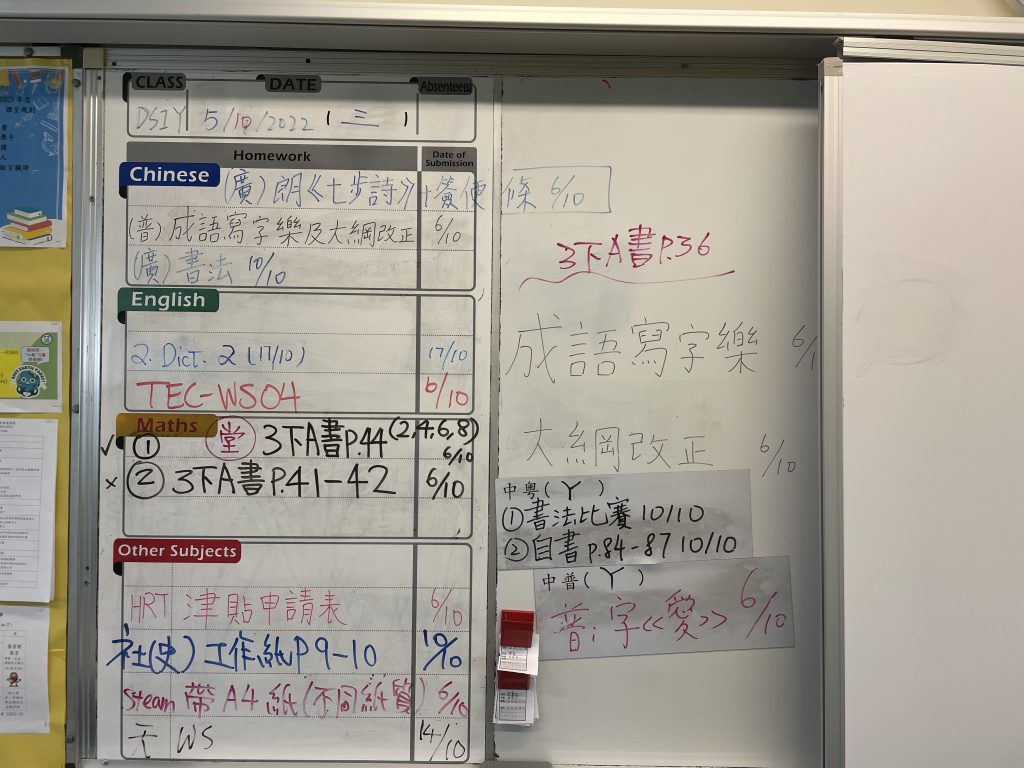 CLASS DATE Absentee(s)
DSIY 5/10/2022 (三)
Homework Date of Submission
Chinese (廣) 朗《七步詩》+簽便條 6/10
(普) 成語寫字樂及大綱改正 6/10
(廣) 書法 10/10
English
2. Dict. 2 (17/10) 17/10
TEC-WS04 6/10
Maths
✓ ① 堂 3下A書P.44 (2,4,6,8) 6/10
× ② 3下A書P.41-42 6/10
Other Subjects
HRT 津貼申請表 6/10
社(史) 工作紙P9-10 19/10
Steam 帶A4紙(不同紙質) 6/10
WS 14/10
3下A書P.36
成語寫字樂 6/1
大綱改正 6/10
中粵(Y)
①書法比賽 10/10
②自書 p.84-87 10/10
中普(Y)
普:字<<愛>> 6/10